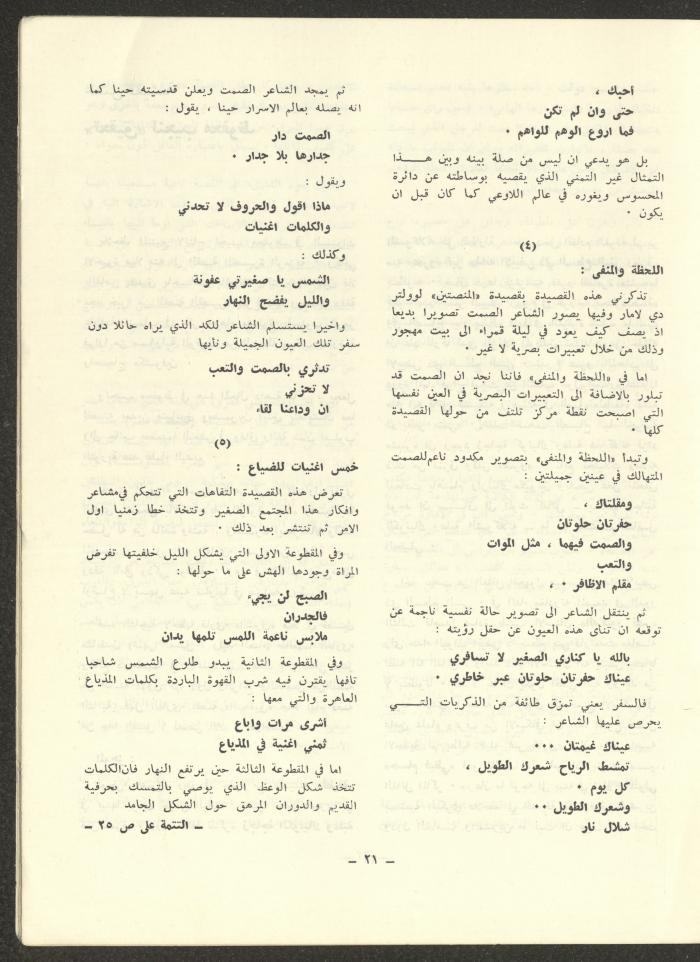 أحبك ،
حتى وان لم تكن
فما اروع الوهم للواهم ·
بل هو يدعي ان ليس من صلة بينه وبين هـــذا
التمثال غير التمني الذي يقصيه بوساطته عن دائرة
المحسوس ويغوره في عالم اللاوعي كما كان قبل ان
يكون ·
(٤)
اللحظة والمنفى :
تذكرني هذه القصيدة بقصيدة «المنصتين» لوولتر
دي لامار وفيها يصور الشاعر الصمت تصويرا بديعا
اذ يصف كيف يعود في ليلة قمراء الى بيت مهجور
وذلك من خلال تعبيرات بصرية لا غير ·
اما في «اللحظة والمنفى» فاننا نجد ان الصمت قد
تبلور بالاضافة الى التعبيرات البصرية في العين نفسها
التي اصبحت نقطة مركز تلتف من حولها القصيدة
كلها ·
وتبدأ «اللحظة والمنفى» بتصوير مكدود ناعم للصمت
المتهالك في عينين جميلتين :
ومقلتاك ،
حفرتان حلوتان
والصمت فيهما ، مثل الموات
والتعب
مقلم الاظافر · ،
ثم ينتقل الشاعر الى تصوير حالة نفسية ناجمة عن
توقعه ان تنأى هذه العيون عن حقل رؤيته :
بالله يا كناري الصغير لا تسافري
عيناك حفرتان حلوتان عبر خاطري ·
فالسفر يعني تمزق طائفة من الذكريات التـــي
يحرص عليها الشاعر :
عيناك غيمتان ···
تمشط الرياح شعرك الطويل ،
كل يوم ·
وشعرك الطويل ··
شلال نار
ثم يمجد الشاعر الصمت ويعلن قدسيته حينا كما
انه يصله بعالم الاسرار حينا ، يقول :
الصمت دار
جدارها بلا جدار ·
ويقول :
ماذا اقول والحروف لا تحدني
والكلمات اغنيات
وكذلك :
الشمس يا صغيرتي عفونة
والليل يفضح النهار
واخيرا يستسلم الشاعر للكد الذي يراه حائلا دون
سفر تلك العيون الجميلة ونأيها
تدثري بالصمت والتعب
لا تحزني
ان وداعنا لقاء
(٥)
خمس اغنيات للضياع :
تعرض هذه القصيدة التفاهات التي تتحكم في مشاعر
وافكار هذا المجتمع الصغير وتتخذ خطا زمنيا اول
الامر ثم تنتشر بعد ذلك ·
وفي المقطوعة الاولى التي يشكل الليل خلفيتها تفرض
المرأة وجودها الهش على ما حولها :
الصبح لن يجيء
فالجدران
ملابس ناعمة اللمس تلمها يدان
وفي المقطوعة الثانية يبدو طلوع الشمس شاحبا
تافها يقترن فيه شرب القهوة الباردة بكلمات المذياع
العاهرة والتي معها :
أشرى مرات واباع
ثمني اغنية في المذياع
اما في المقطوعة الثالثة حين يرتفع النهار فان الكلمات
تتخذ شكل الوعظ الذي يوصي بالتمسك بحرفية
القديم والدوران المرهق حول الشكل الجامد
ــ التتمة على ص ٢٥ ــ
ــ ٢١ ــ